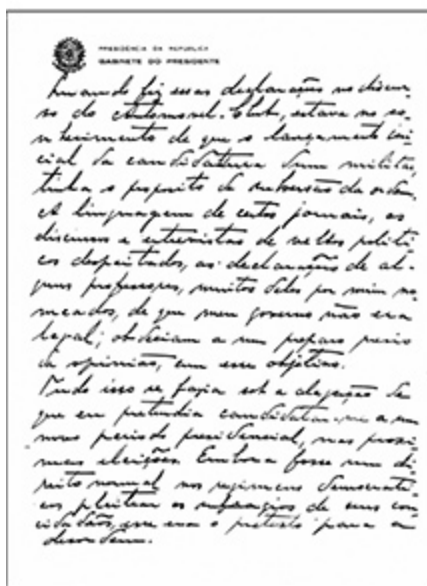 PRESIDÊNCIA DA REPÚBLICA
GABINETE DO PRESIDENTE
Quando fiz essas declarações no discur-
so do Automovel-Club, estava no co-
nhecimento de que o lançamento ini-
cial da candidatura dum militar,
tinha o proposito de subversão da ordem.
A linguagem de certos jornais, os
discursos e entrevistas de velhos politi-
cos despeitados, as declarações de al-
guns professores, muitos deles por mim no-
meados, de que meu governo não era
legal; obedeciam a um preparo previo
da opinião, com esse objetivo.
Tudo isso se fazia sob a alegação de
que eu pretendia candidatar-me a um
novo periodo presidencial, nas proxi-
mas eleições. Embora fosse um di-
reito normal nos regimens democrati-
cos pleitear os sufragios de seus con-
cidadãos, esse era o pretexto para a
desordem.